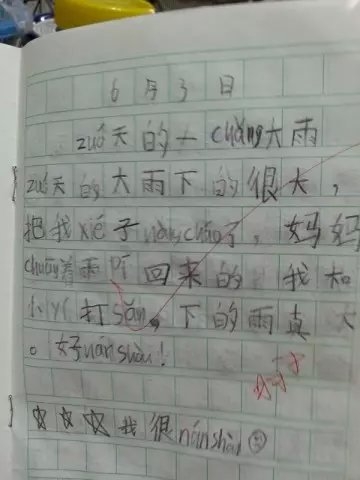 6月3日
zuó天的一chǎng大雨
zuó天的大雨下的很大，
把我xié子nòng cháo了，妈妈
chuān着雨pī回来的。我和
小yí打sǎn。下的雨真大
。好nán shòu！
☆☆☆我很nán shòu☺